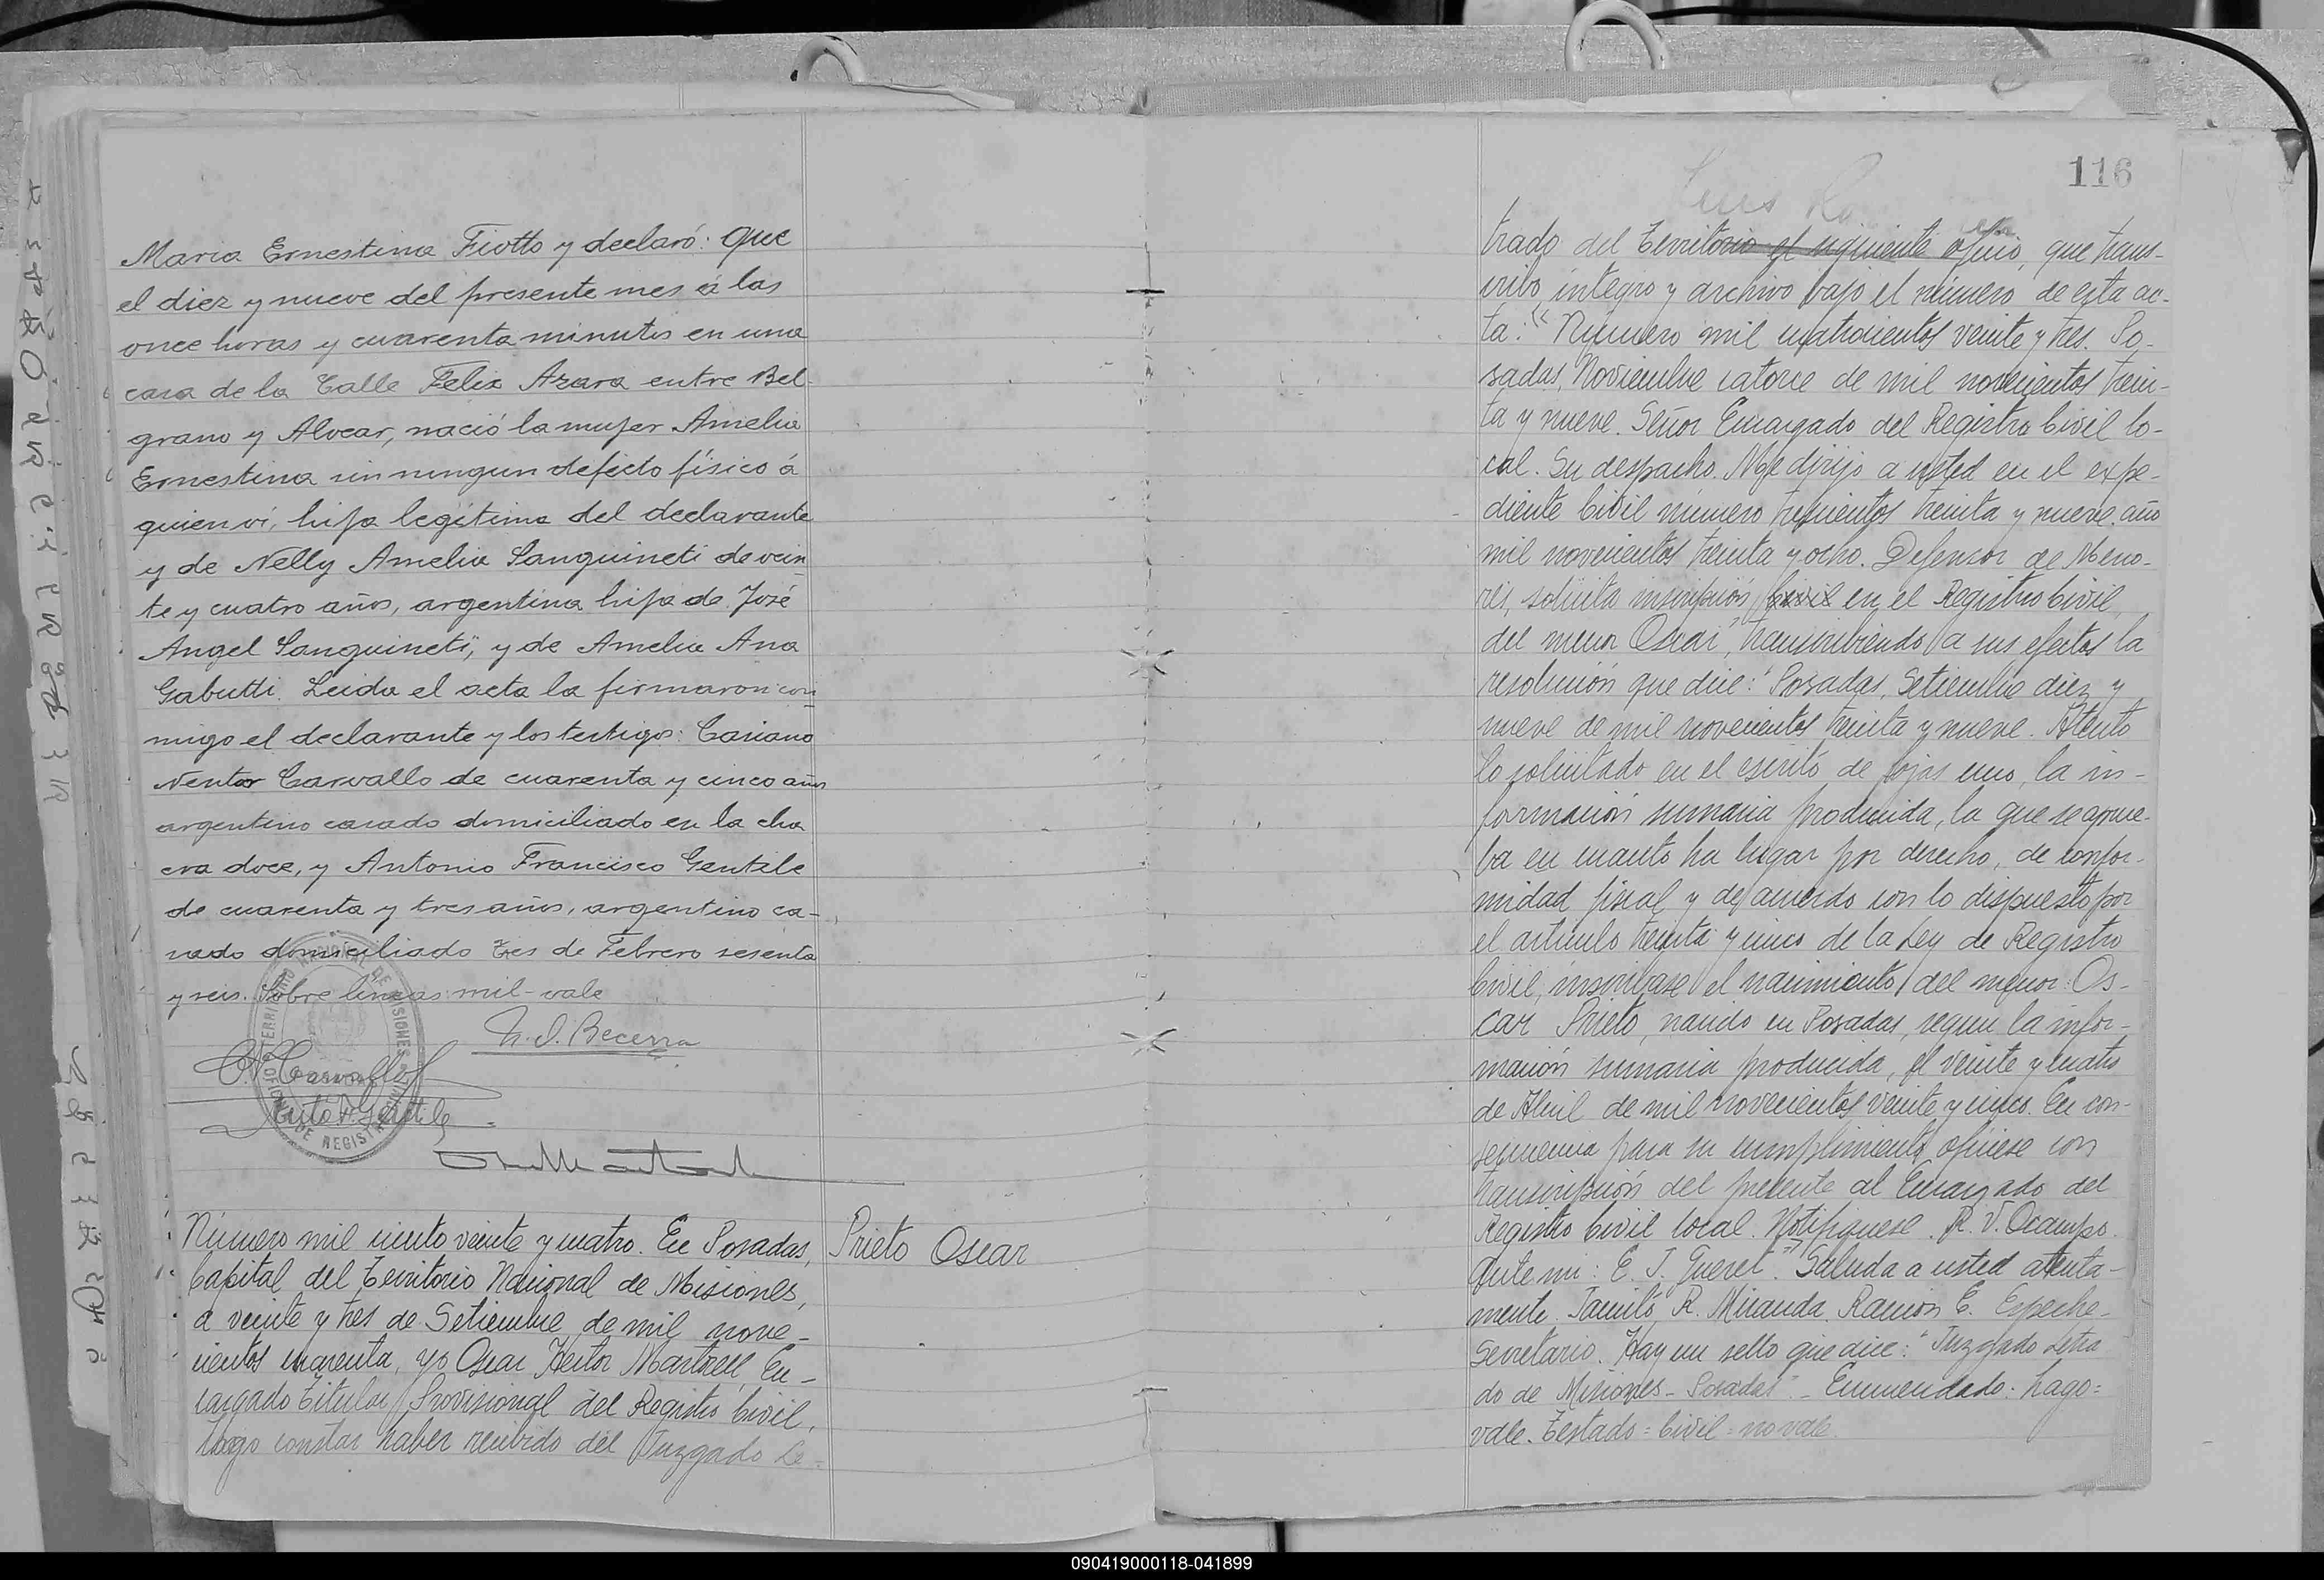 Maria Ernestina Fiotto y declaró: que
el diez y nueve del presente mes á las
once horas y cuarenta minutos en una
casa de la Calle Felix Azara entre Bel-
grano y Alvear, nació la mujer Amelia
Ernestina sin ningun defecto físico á
quien ví, hija legítima del declarante
y de Nelly Amelia Sanguineti de vein
te y cuatro años, argentina hija de José
Angel Sanguineti, y de Amelia Ana
Gabutti. Leida el acta la firmaron con
migo el declarante y los testigos: Casiano
Nentor Carvallo de cuarenta y cinco años
argentino casado domiciliado en la cha
cra doce, y Antonio Francisco Gentile
de cuarenta y tres años, argentino ca-
sado domiciliado tres de Febrero sesenta
y seis. Sobre lineas: mil - vale
Becerra
Carvallo
Gentile
Número mil ciento veinte y cuatro. En Posadas,
Capital del Territorio Nacional de Misiones,
a veinte y tres de Setiembre de mil nove-
cientos cuarenta, yo Oscar Hector Martorell, En-
cargado Titular Provisional del Registro Civil,
hago constar haber recibido del Juzgado Le-
Prieto Oscar
116
trado del Territorio el siguiente oficio, que trans-
cribo íntegro y archivo bajo el número de esta ac-
ta: "Número mil cuatrocientos veinte y tres. Po-
sadas, Noviembre catorce de mil novecientos trein-
ta y nueve. Señor Encargado del Registro Civil lo-
cal. Su despacho. Me dirijo a usted en el expe-
diente Civil número trescientos treinta y nueve año
mil novecientos treinta y ocho. Defensor de Meno-
res, solicita inscripción Civil en el Registro Civil,
del menor Oscar", transcribiendo a sus efectos la
resolución que dice: "Posadas, Setiembre diez y
nueve de mil novecientos treinta y nueve. Atento
lo solicitado en el escrito de fojas uno, la in-
formación sumaria producida, la que se aprue-
ba en cuanto ha lugar por derecho, de confor-
midad fiscal y de acuerdo con lo dispuesto por
el artículo treinta y cinco de la Ley de Registro
Civil, inscríbase el nacimiento del menor: Os-
car Prieto, nacido en Posadas, según la infor-
mación sumaria producida, el veinte y cuatro
de Abril de mil novecientos veinte y cinco. En con-
secuencia para su cumplimiento ofíciese con
transcripción del presente al Encargado del
Registro Civil local. Notifíquese. R. V. Ocampo.
Ante mi: E. J. Gueret". Saluda a usted atenta-
mente. R. Miranda. Ramón E. Espeche-
Secretario. Hay un sello que dice: "Juzgado Letra
do de Misiones - Posadas" - Enmendado: hago =
vale. Testado = Civil = no vale.
090419000118-041899